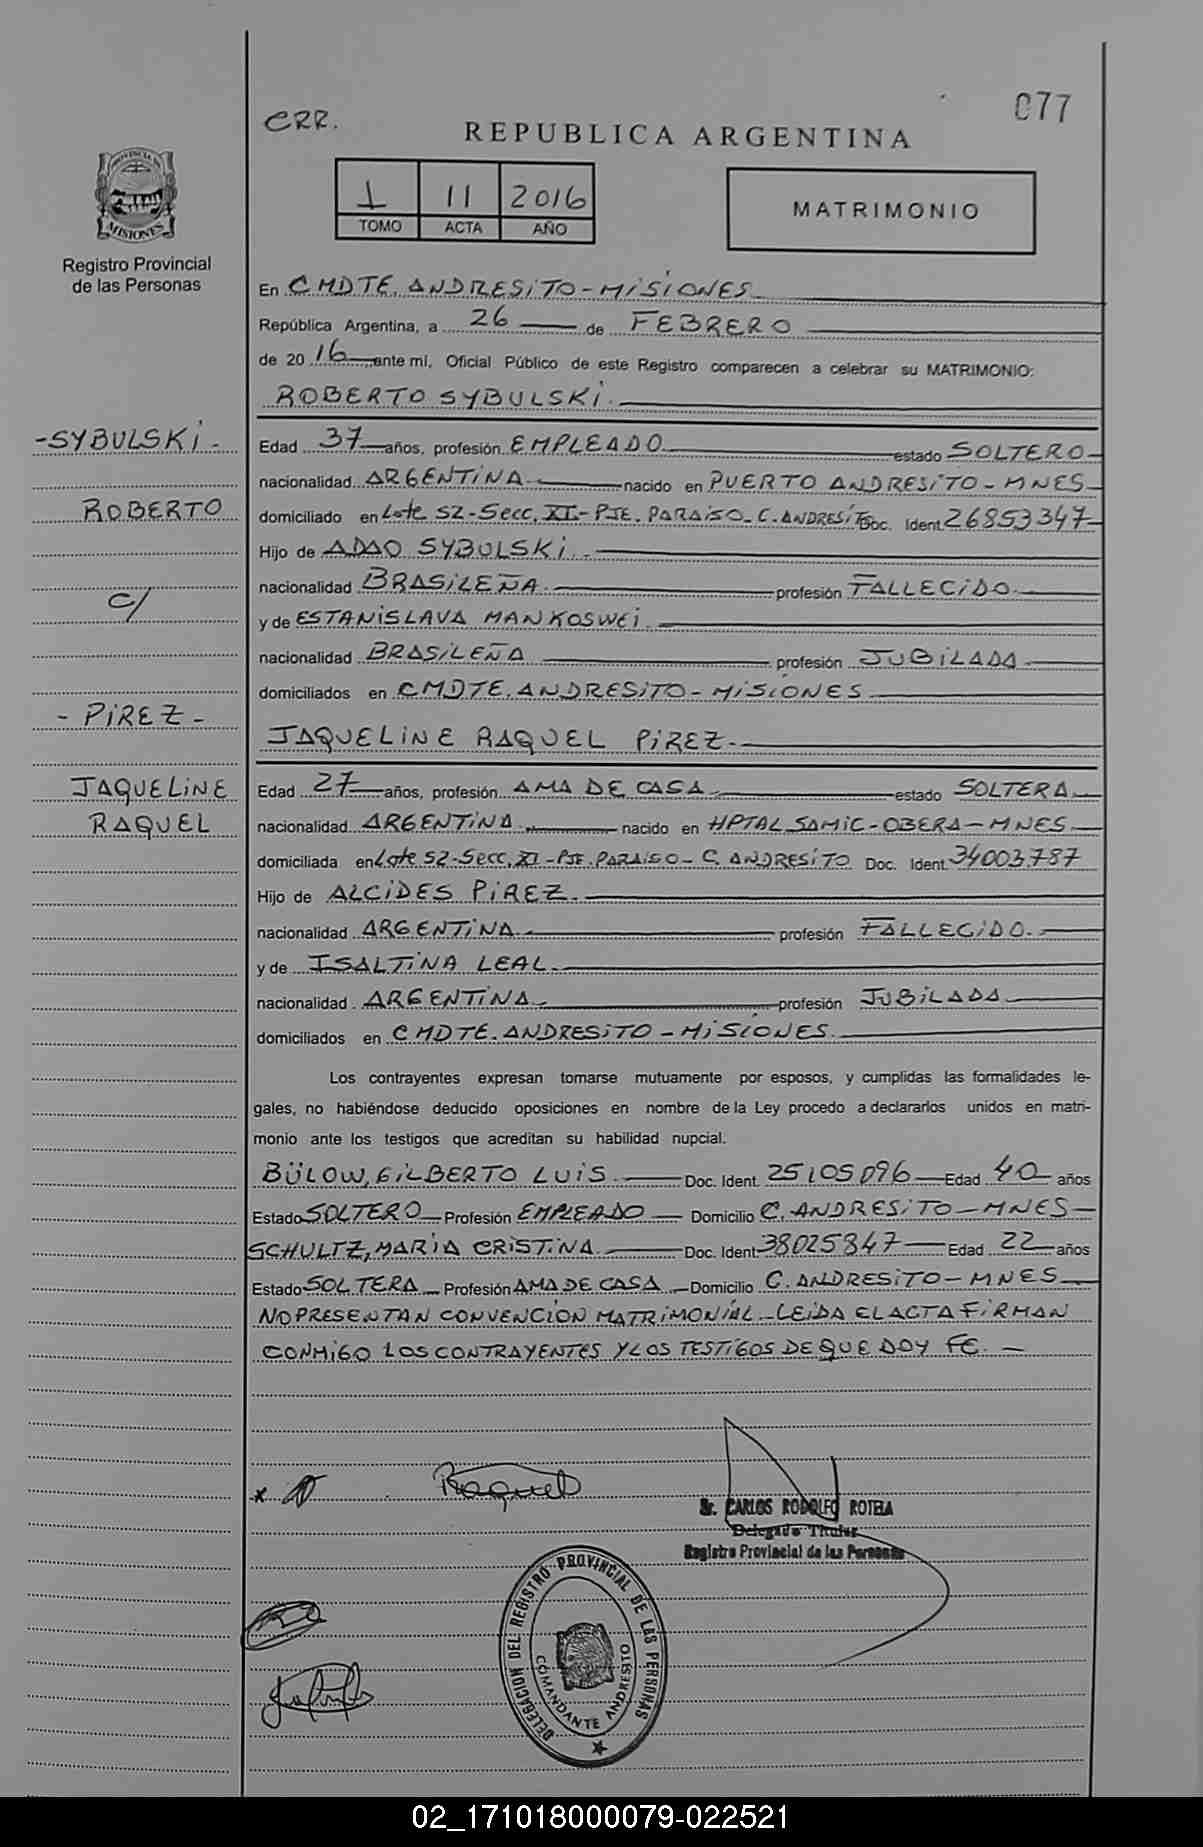 077
CRR.
REPUBLICA ARGENTINA
1 11 2016
TOMO ACTA AÑO
MATRIMONIO
PROVINCIA DE
MISIONES
Registro Provincial
de las Personas
En CMDTE. ANDRESITO - MISIONES
República Argentina, a 26 de FEBRERO
de 2016 ante mí, Oficial Público de este Registro comparecen a celebrar su MATRIMONIO:
ROBERTO SYBULSKI.
- SYBULSKI -
ROBERTO
c/
- PIREZ -
JAQUELINE
RAQUEL
Edad 37 años, profesión EMPLEADO estado SOLTERO
nacionalidad ARGENTINA nacido en PUERTO ANDRESITO - MNES
domiciliado en Lote 52-Secc. XI - PJE. PARAISO - C. ANDRESITO Doc. Ident. 26853347
Hijo de ADAO SYBULSKI.
nacionalidad BRASILEÑA profesión FALLECIDO
y de ESTANISLAVA MANKOSWEI.
nacionalidad BRASILEÑA profesión JUBILADA
domiciliados en CMDTE. ANDRESITO - MISIONES
JAQUELINE RAQUEL PIREZ.
Edad 27 años, profesión AMA DE CASA estado SOLTERA
nacionalidad ARGENTINA nacido en HPTAL SAMIC - OBERA - MNES
domiciliada en Lote 52-Secc. XI - PJE. PARAISO - C. ANDRESITO Doc. Ident. 34003787
Hijo de ALCIDES PIREZ.
nacionalidad ARGENTINA profesión FALLECIDO.
y de ISALTINA LEAL.
nacionalidad ARGENTINA profesión JUBILADA
domiciliados en CMDTE. ANDRESITO - MISIONES.
Los contrayentes expresan tomarse mutuamente por esposos, y cumplidas las formalidades le-
gales, no habiéndose deducido oposiciones en nombre de la Ley procedo a declararlos unidos en matri-
monio ante los testigos que acreditan su habilidad nupcial.
BÜLOW, GILBERTO LUIS Doc. Ident. 25105096 Edad 40 años
Estado SOLTERO Profesión EMPLEADO Domicilio C. ANDRESITO - MNES
SCHULTZ, MARIA CRISTINA Doc. Ident 38025847 Edad 22 años
Estado SOLTERA Profesión AMA DE CASA Domicilio C. ANDRESITO - MNES
NO PRESENTAN CONVENCION MATRIMONIAL - LEIDA EL ACTA FIRMAN
CONMIGO LOS CONTRAYENTES Y LOS TESTIGOS DE QUE DOY FE. -
Raquel
Sr. CARLOS RODOLFO ROTELA
Delegado Titular
Registro Provincial de las Personas
DELEGACION DEL REGISTRO PROVINCIAL DE LAS PERSONAS
COMANDANTE ANDRESITO
02_171018000079-022521